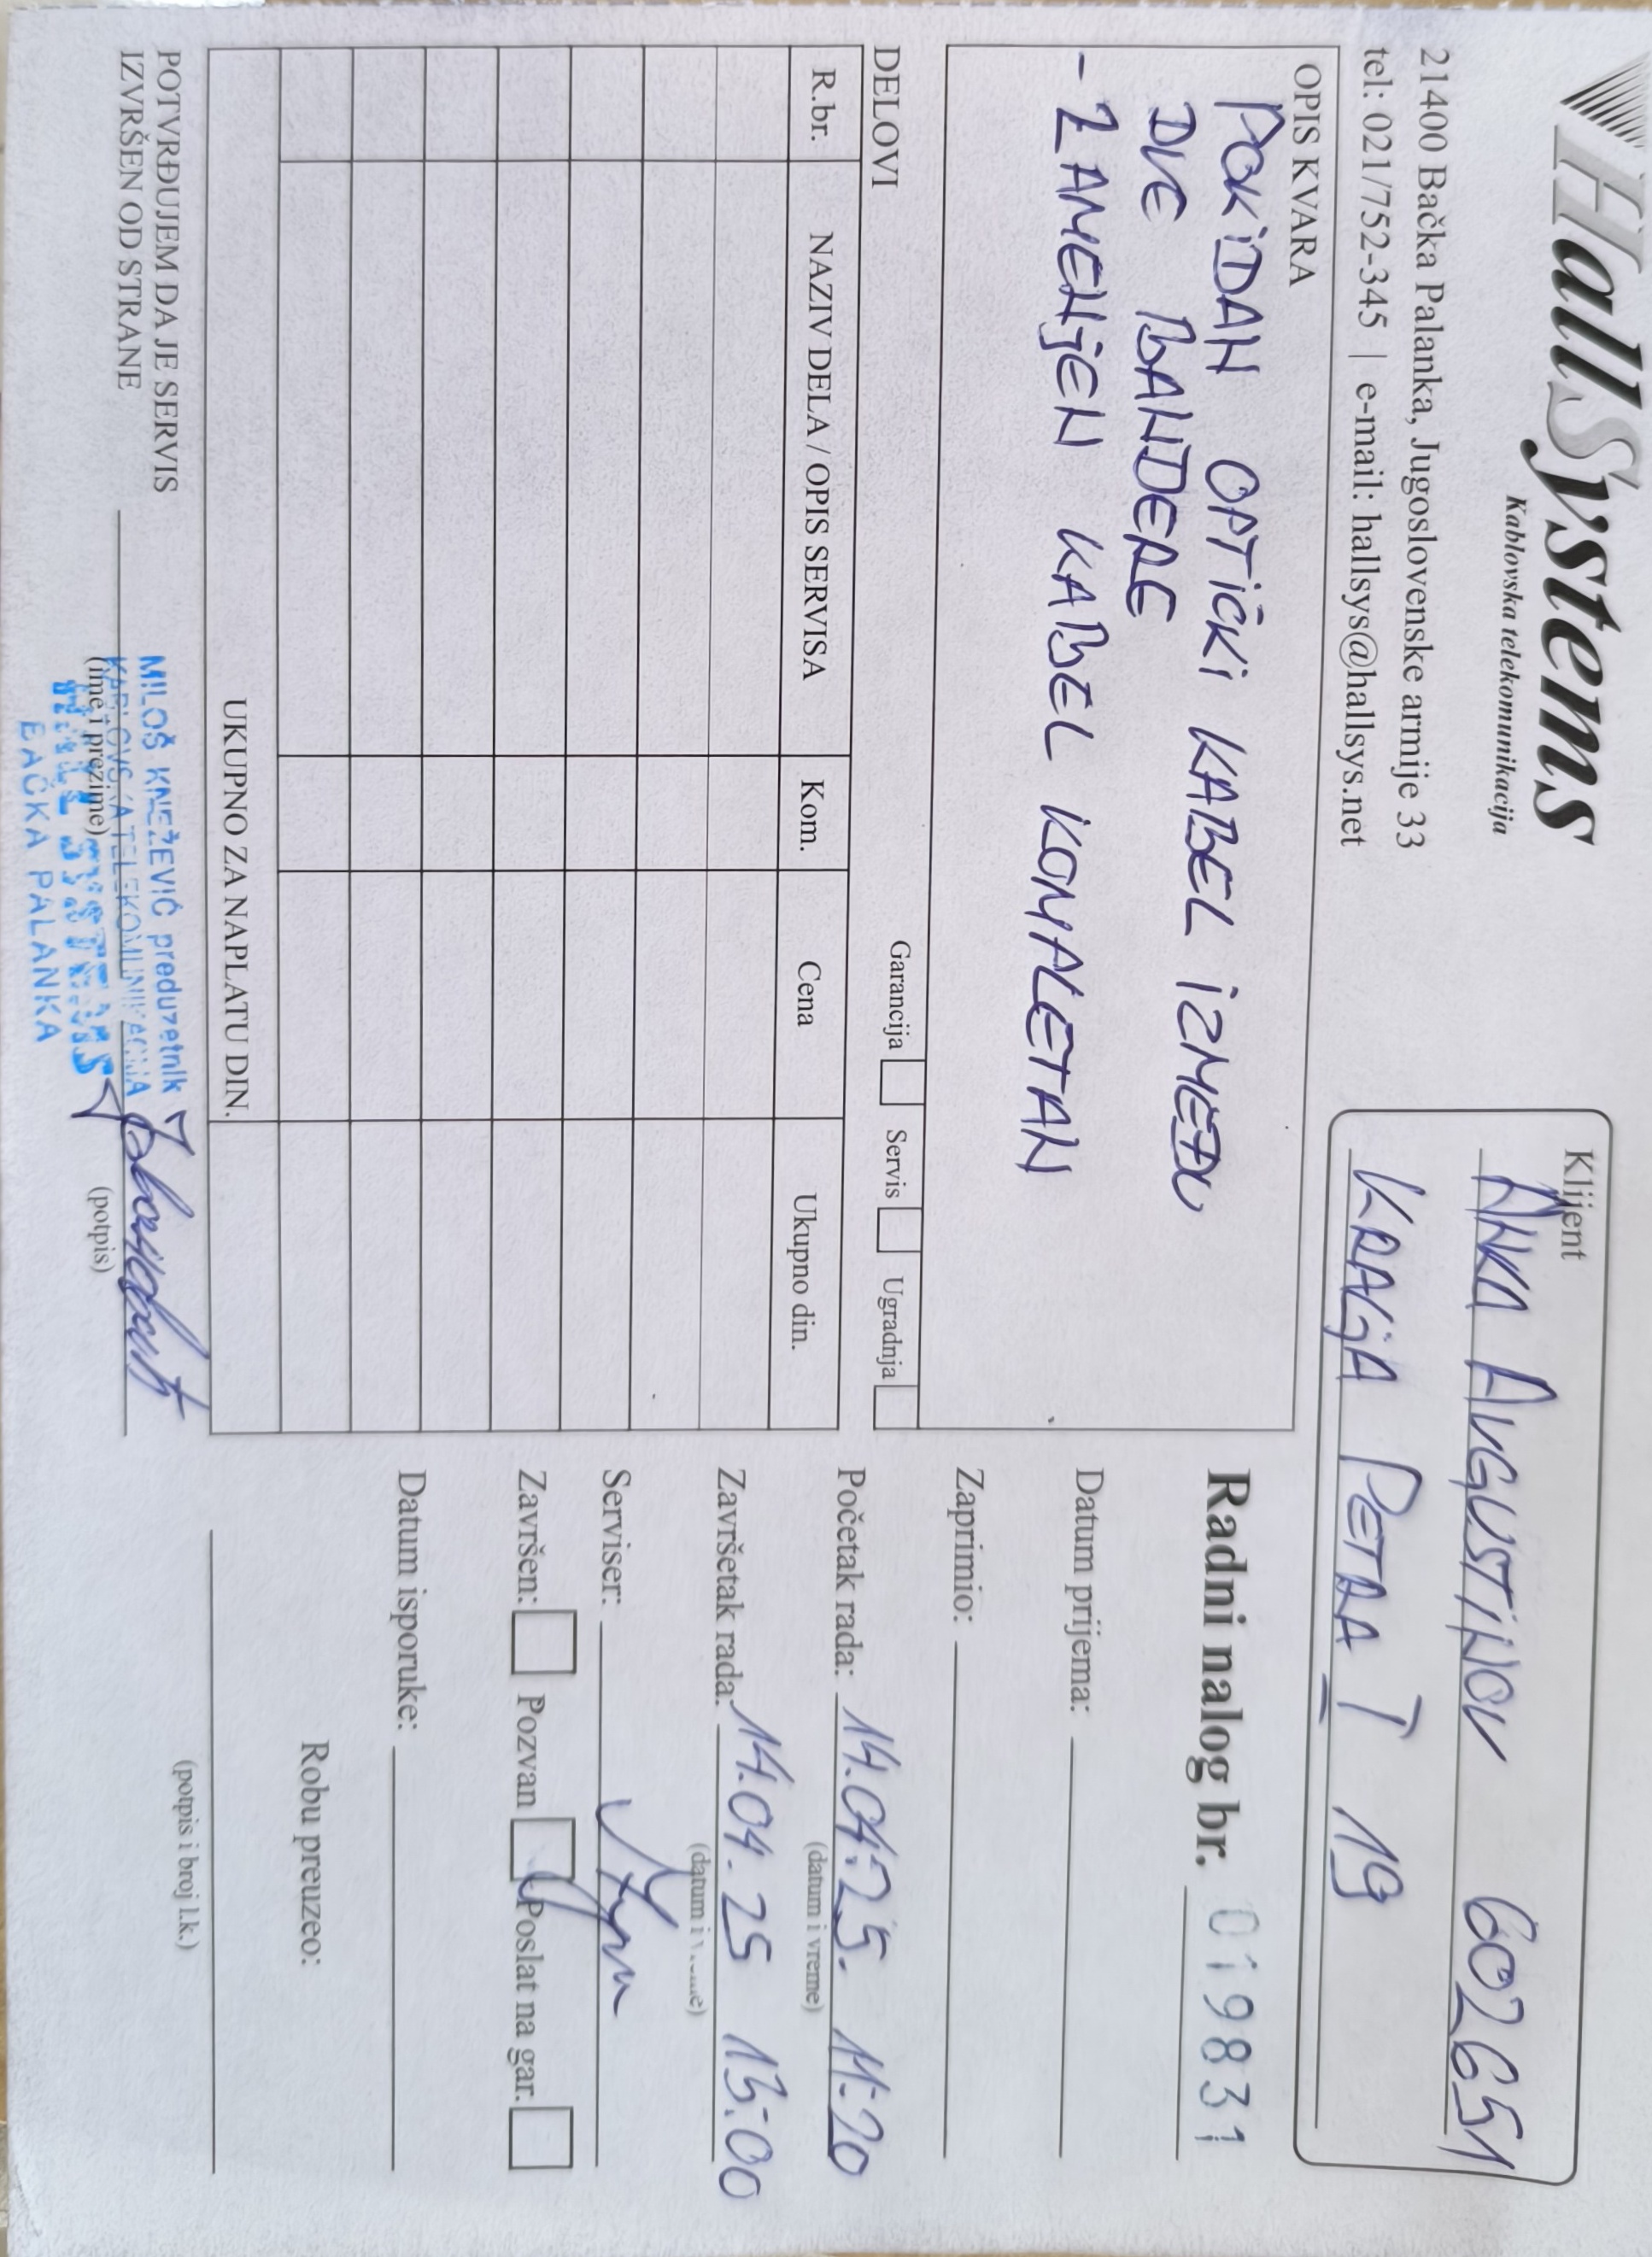 HallSystems
Kablovska telekomunikacija
21400 Bačka Palanka, Jugoslovenske armije 33
tel: 021/752-345 | e-mail: hallsys@hallsys.net
Klijent
ANKA AUGUSTINOV 602651
KRALJA PETRA I 19
OPIS KVARA
POKIDAN OPTIČKI KABEL IZMEĐU
DVE BANDERE
- ZAMENJEN KABEL KOMPLETAN
DELOVI
Garancija Servis Ugradnja
R.br. NAZIV DELA / OPIS SERVISA Kom. Cena Ukupno din.
UKUPNO ZA NAPLATU DIN.
POTVRĐUJEM DA JE SERVIS
IZVRŠEN OD STRANE
MILOŠ KNEŽEVIĆ preduzetnik
KABLOVSKA TELEKOMUNIKACIJA
(ime i prezime)
HALL SYSTEMS
BAČKA PALANKA
(potpis)
Radni nalog br. 019831
Datum prijema:
Zaprimio:
Početak rada: 14.04.25. 11:20
(datum i vreme)
Završetak rada: 14.04.25 13:00
(datum i vreme)
Serviser:
Završen: Pozvan Poslat na gar.
Datum isporuke:
Robu preuzeo:
(potpis i broj l.k.)